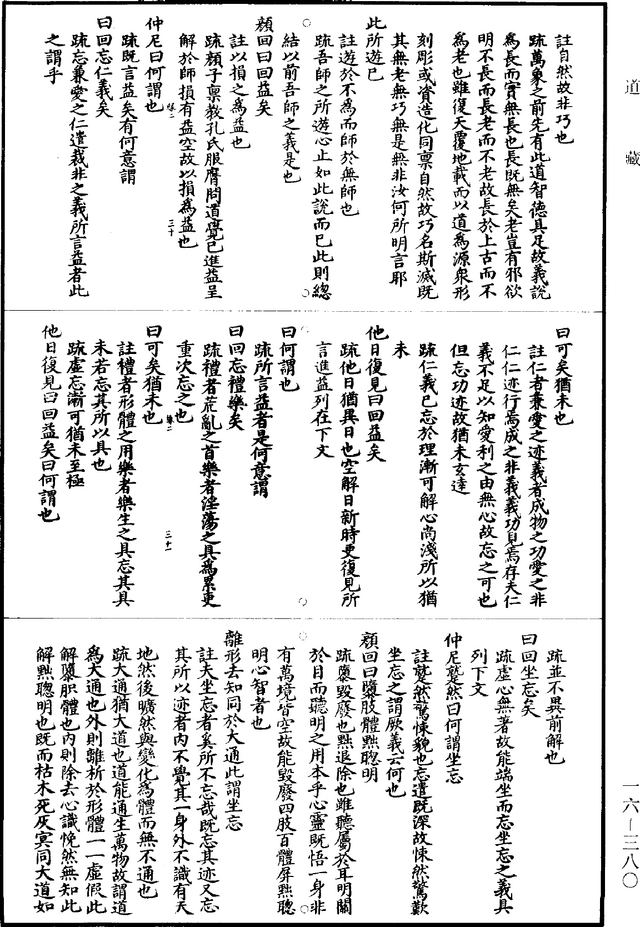 道藏
註自然故非巧也
疏萬象之前先有此道智德具足故義說
爲長而實無長也長既無矣老豈有邪欲
明不長而長老而不老故長於上古而不
爲老也雖復天覆地載而以道爲源衆形
刻彫咸資造化同稟自然故巧名斯滅既
其無老無巧無是無非汝何所明言耶
此所遊已
註遊於不爲而師於無師也
疏吾師之所遊心止如此說而已此則總
結以前吾師之義是也
顏回曰回益矣
註以損之爲益也
疏顏子稟教孔氏服膺問道覺己進益呈
解於師損有益空故以損爲益也
仲尼曰何謂也
疏既言益矣有何意謂
曰回忘仁義矣
疏忘兼愛之仁遣裁非之義所言益者此
之謂乎
曰可矣猶未也
註仁者兼愛之迹義者成物之功愛之非
仁仁迹行焉成之非義義功見焉存夫仁
義不足以知愛利之由無心故忘之可也
但忘功迹故猶未玄達
疏仁義已忘於理漸可解心尚淺所以猶
未
他日復見曰回益矣
疏他日猶異日也空解日新時更復見所
言進益列在下文
曰何謂也
疏所言益者是何意謂
曰回忘禮樂矣
疏禮者荒亂之首樂者淫蕩之具爲累更
重次忘之也
曰可矣猶未也
註禮者形體之用樂者樂生之具忘其具
未若忘其所以具也
疏虛忘漸可猶未至極
他日復見曰回益矣曰何謂也
疏並不異前解也
曰回坐忘矣
疏虛心無著故能端坐而忘坐忘之義具
列下文
仲尼蹵然曰何謂坐忘
註蹵然驚悚貌也忘遺既深故悚然驚歎
坐忘之謂厥義云何也
顏回曰墮肢體黜聰明
疏墮毀廢也黜退除也雖聽屬於耳明關
於目而聰明之用本乎心靈既悟一身非
有萬境皆空故能毀廢四肢百體屏黜聰
明心智者也
離形去知同於大通此謂坐忘
註夫坐忘者奚所不忘哉既忘其迹又忘
其所以迹者內不覺其一身外不識有天
地然後曠然與變化爲體而無不通也
疏大通猶大道也道能通生萬物故謂道
爲大通也外則離析於形體一一虛假此
解墮肢體也內則除去心識悗然無知此
解黜聰明也既而枯木死灰冥同大道如
一六—三八〇